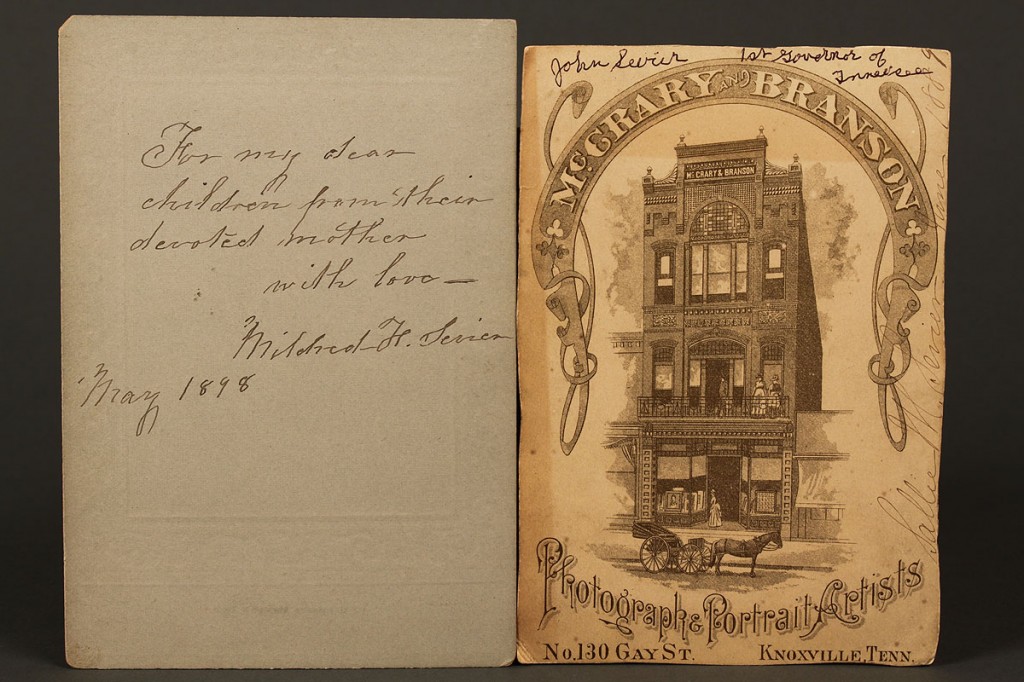 For my dear
children from their
devoted mother
with love —
Mildred H. Sevier
May 1898
John Sevier 1st Governor of
Tennessee
McCRARY AND BRANSON
McCRARY & BRANSON
Photograph & Portrait Artists
No. 130 GAY ST. KNOXVILLE, TENN.
Sallie